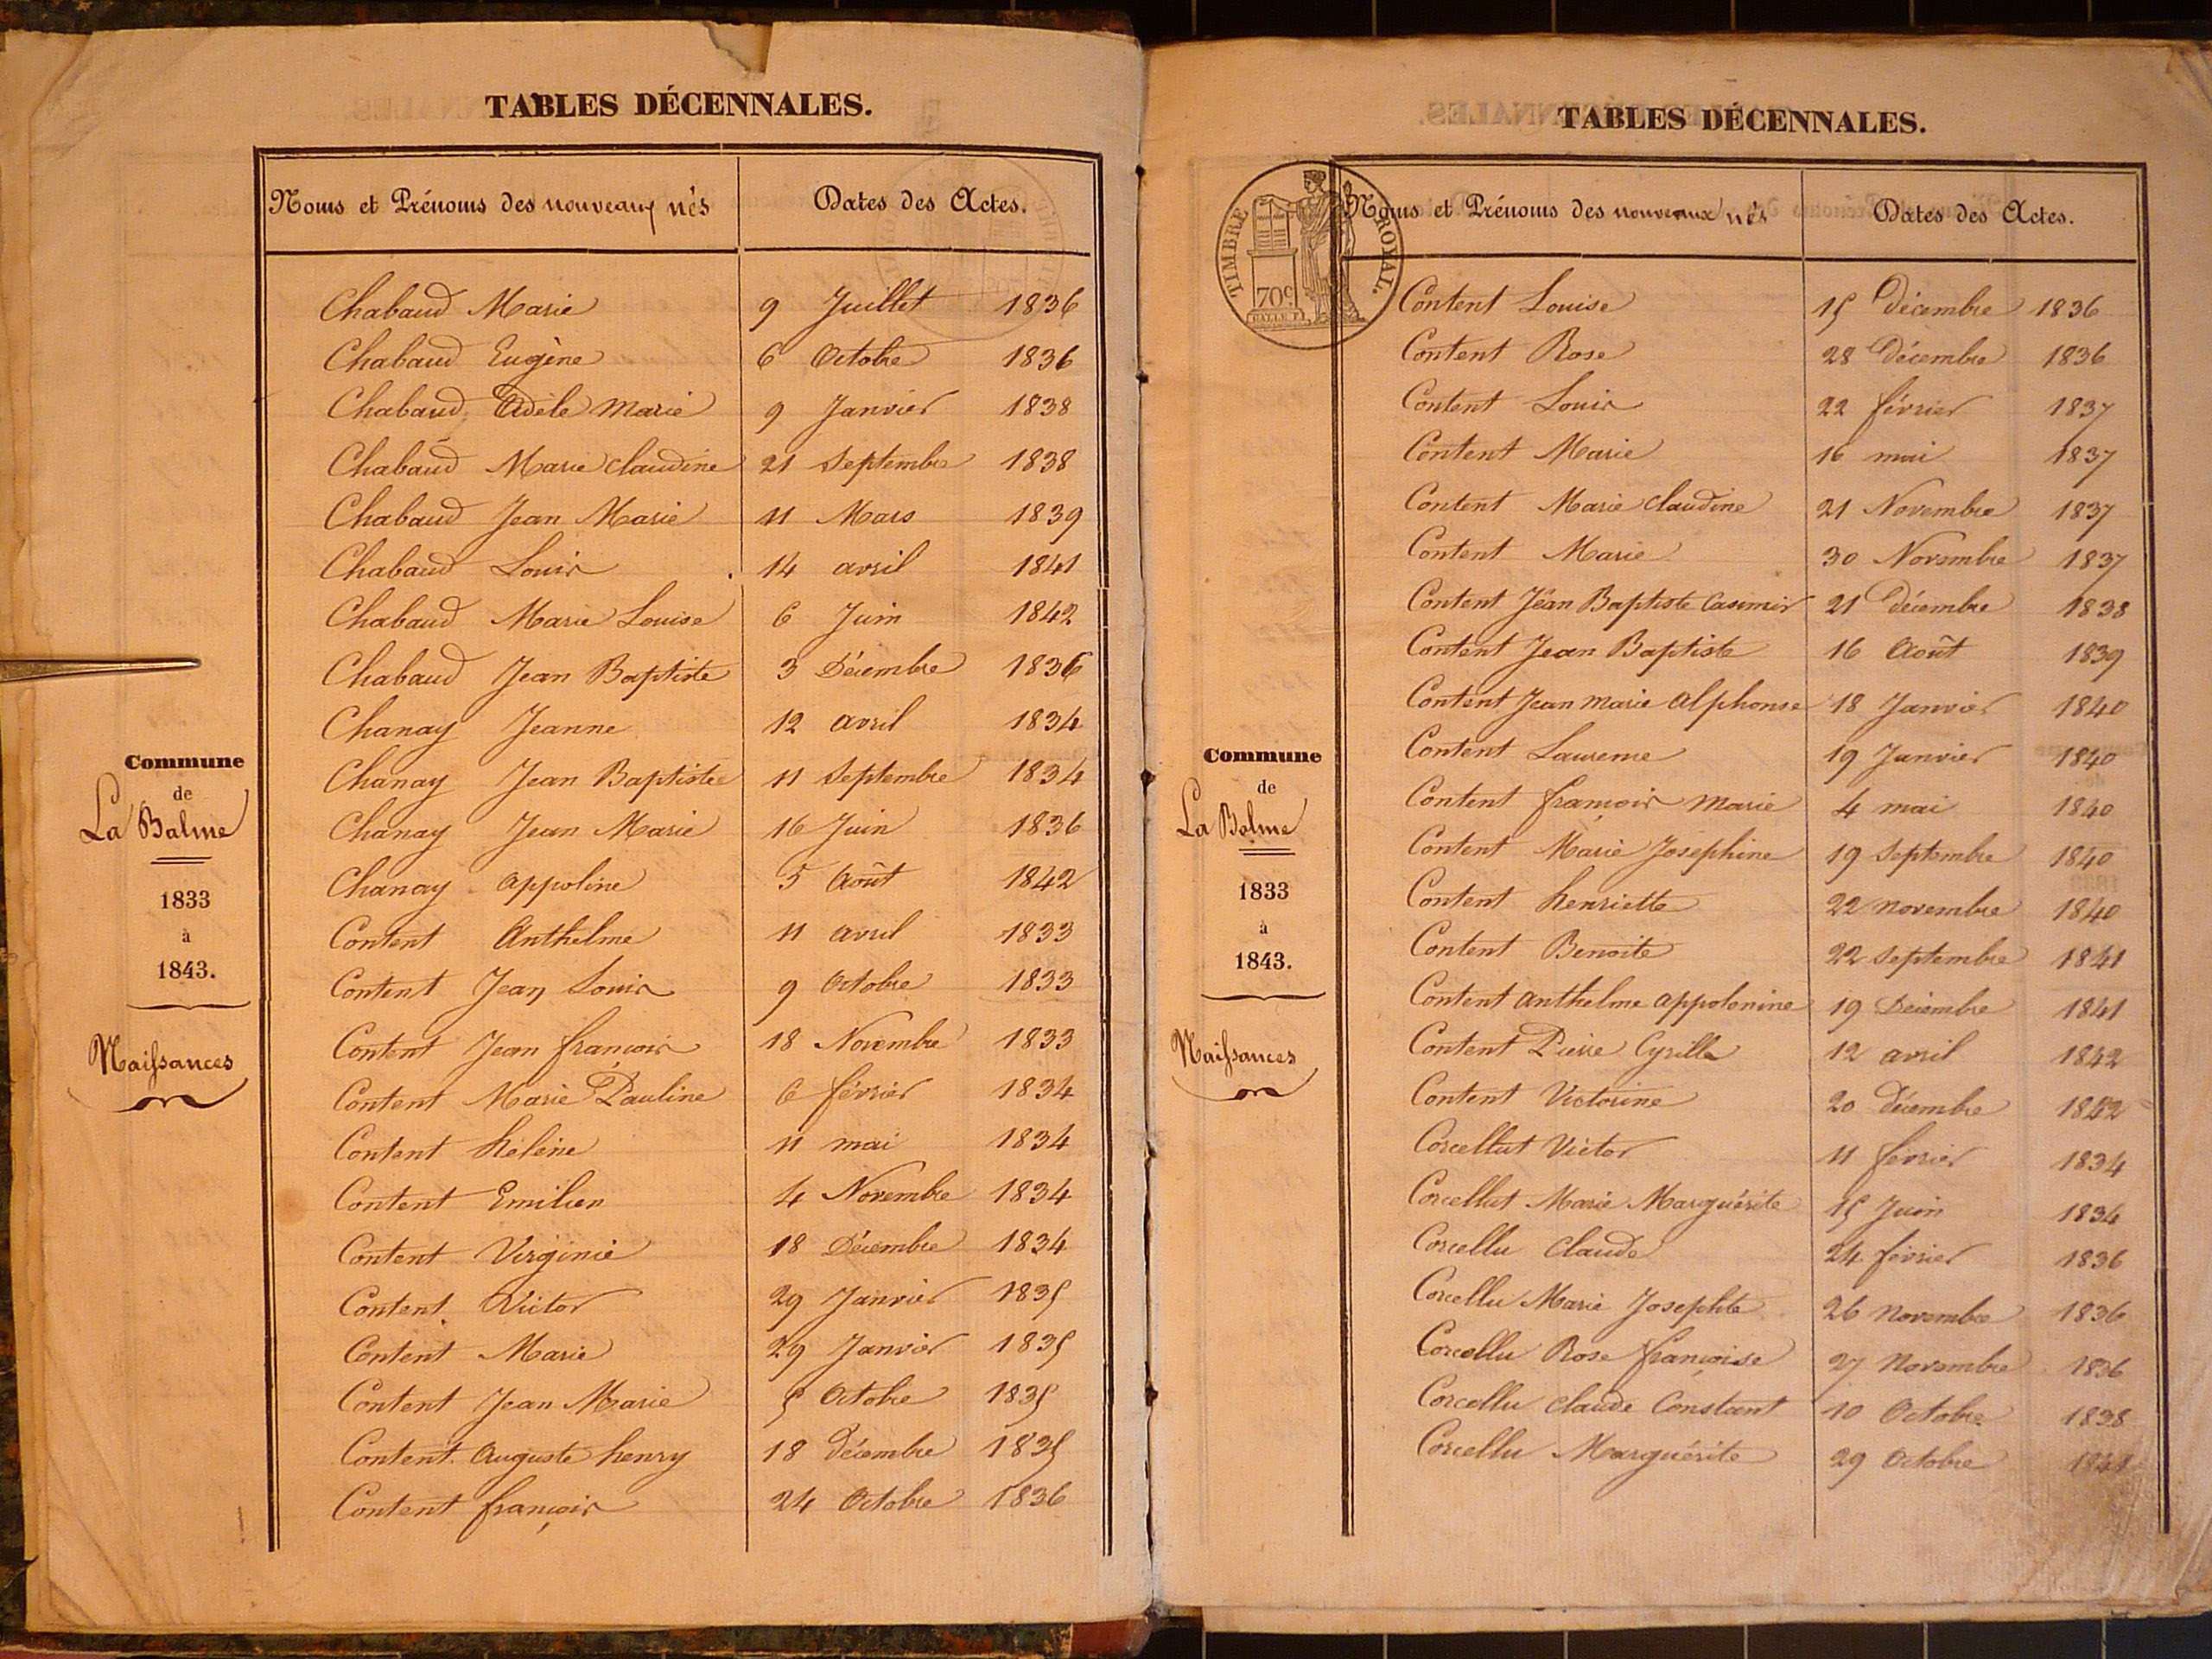 TABLES DÉCENNALES.
Noms et Prénoms des nouveaux nés Dates des Actes.
Commune
de
La Balme
1833
à
1843.
Naissances
Chabaud Marie 9 Juillet 1836
Chabaud Eugène 6 Octobre 1836
Chabaud Adèle Marie 9 Janvier 1838
Chabaud Marie Claudine 21 Septembre 1838
Chabaud Jean Marie 11 Mars 1839
Chabaud Louis 14 avril 1841
Chabaud Marie Louise 6 Juin 1842
Chabaud Jean Baptiste 3 Décembre 1836
Chanay Jeanne 12 avril 1834
Chanay Jean Baptiste 11 Septembre 1834
Chanay Jean Marie 16 Juin 1836
Chanay Appoline 5 Août 1842
Content Anthelme 11 avril 1833
Content Jean Louis 9 Octobre 1833
Content Jean françois 18 Novembre 1833
Content Marie Pauline 6 février 1834
Content héléne 11 mai 1834
Content Emilien 4 Novembre 1834
Content Virginie 18 Décembre 1834
Content Victor 29 Janvier 1835
Content Marie 29 Janvier 1835
Content Jean Marie 5 Octobre 1835
Content Auguste henry 18 Décembre 1835
Content françois 24 Octobre 1836
TABLES DÉCENNALES.
TIMBRE ROYAL.
70c
Noms et Prénoms des nouveaux nés Dates des Actes.
Commune
de
La Balme
1833
à
1843.
Naissances
Content Louise 15 Décembre 1836
Content Rose 28 Décembre 1836
Content Louis 22 février 1837
Content Marie 16 mai 1837
Content Marie Claudine 21 Novembre 1837
Content Marie 30 Novembre 1837
Content Jean Baptiste Casimir 21 Décembre 1838
Content Jean Baptiste 16 Août 1839
Content Jean Marie Alphonse 18 Janvier 1840
Content Laurence 19 Janvier 1840
Content françois Marie 4 mai 1840
Content Marie Joséphine 19 Septembre 1840
Content henriette 22 novembre 1840
Content Benoite 22 Septembre 1841
Content Anthelme Appolonine 19 Décembre 1841
Content Pierre Cyrille 12 avril 1842
Content Victorine 20 Décembre 1842
Corcellut Victor 11 février 1834
Corcellut Marie Marguérite 15 Juin 1834
Corcellu Claude 24 février 1836
Corcellu Marie Josephte 26 novembre 1836
Corcellu Rose françoise 27 Novembre 1836
Corcellu Claude Constant 10 Octobre 1838
Corcellu Marguérite 29 Octobre 1841